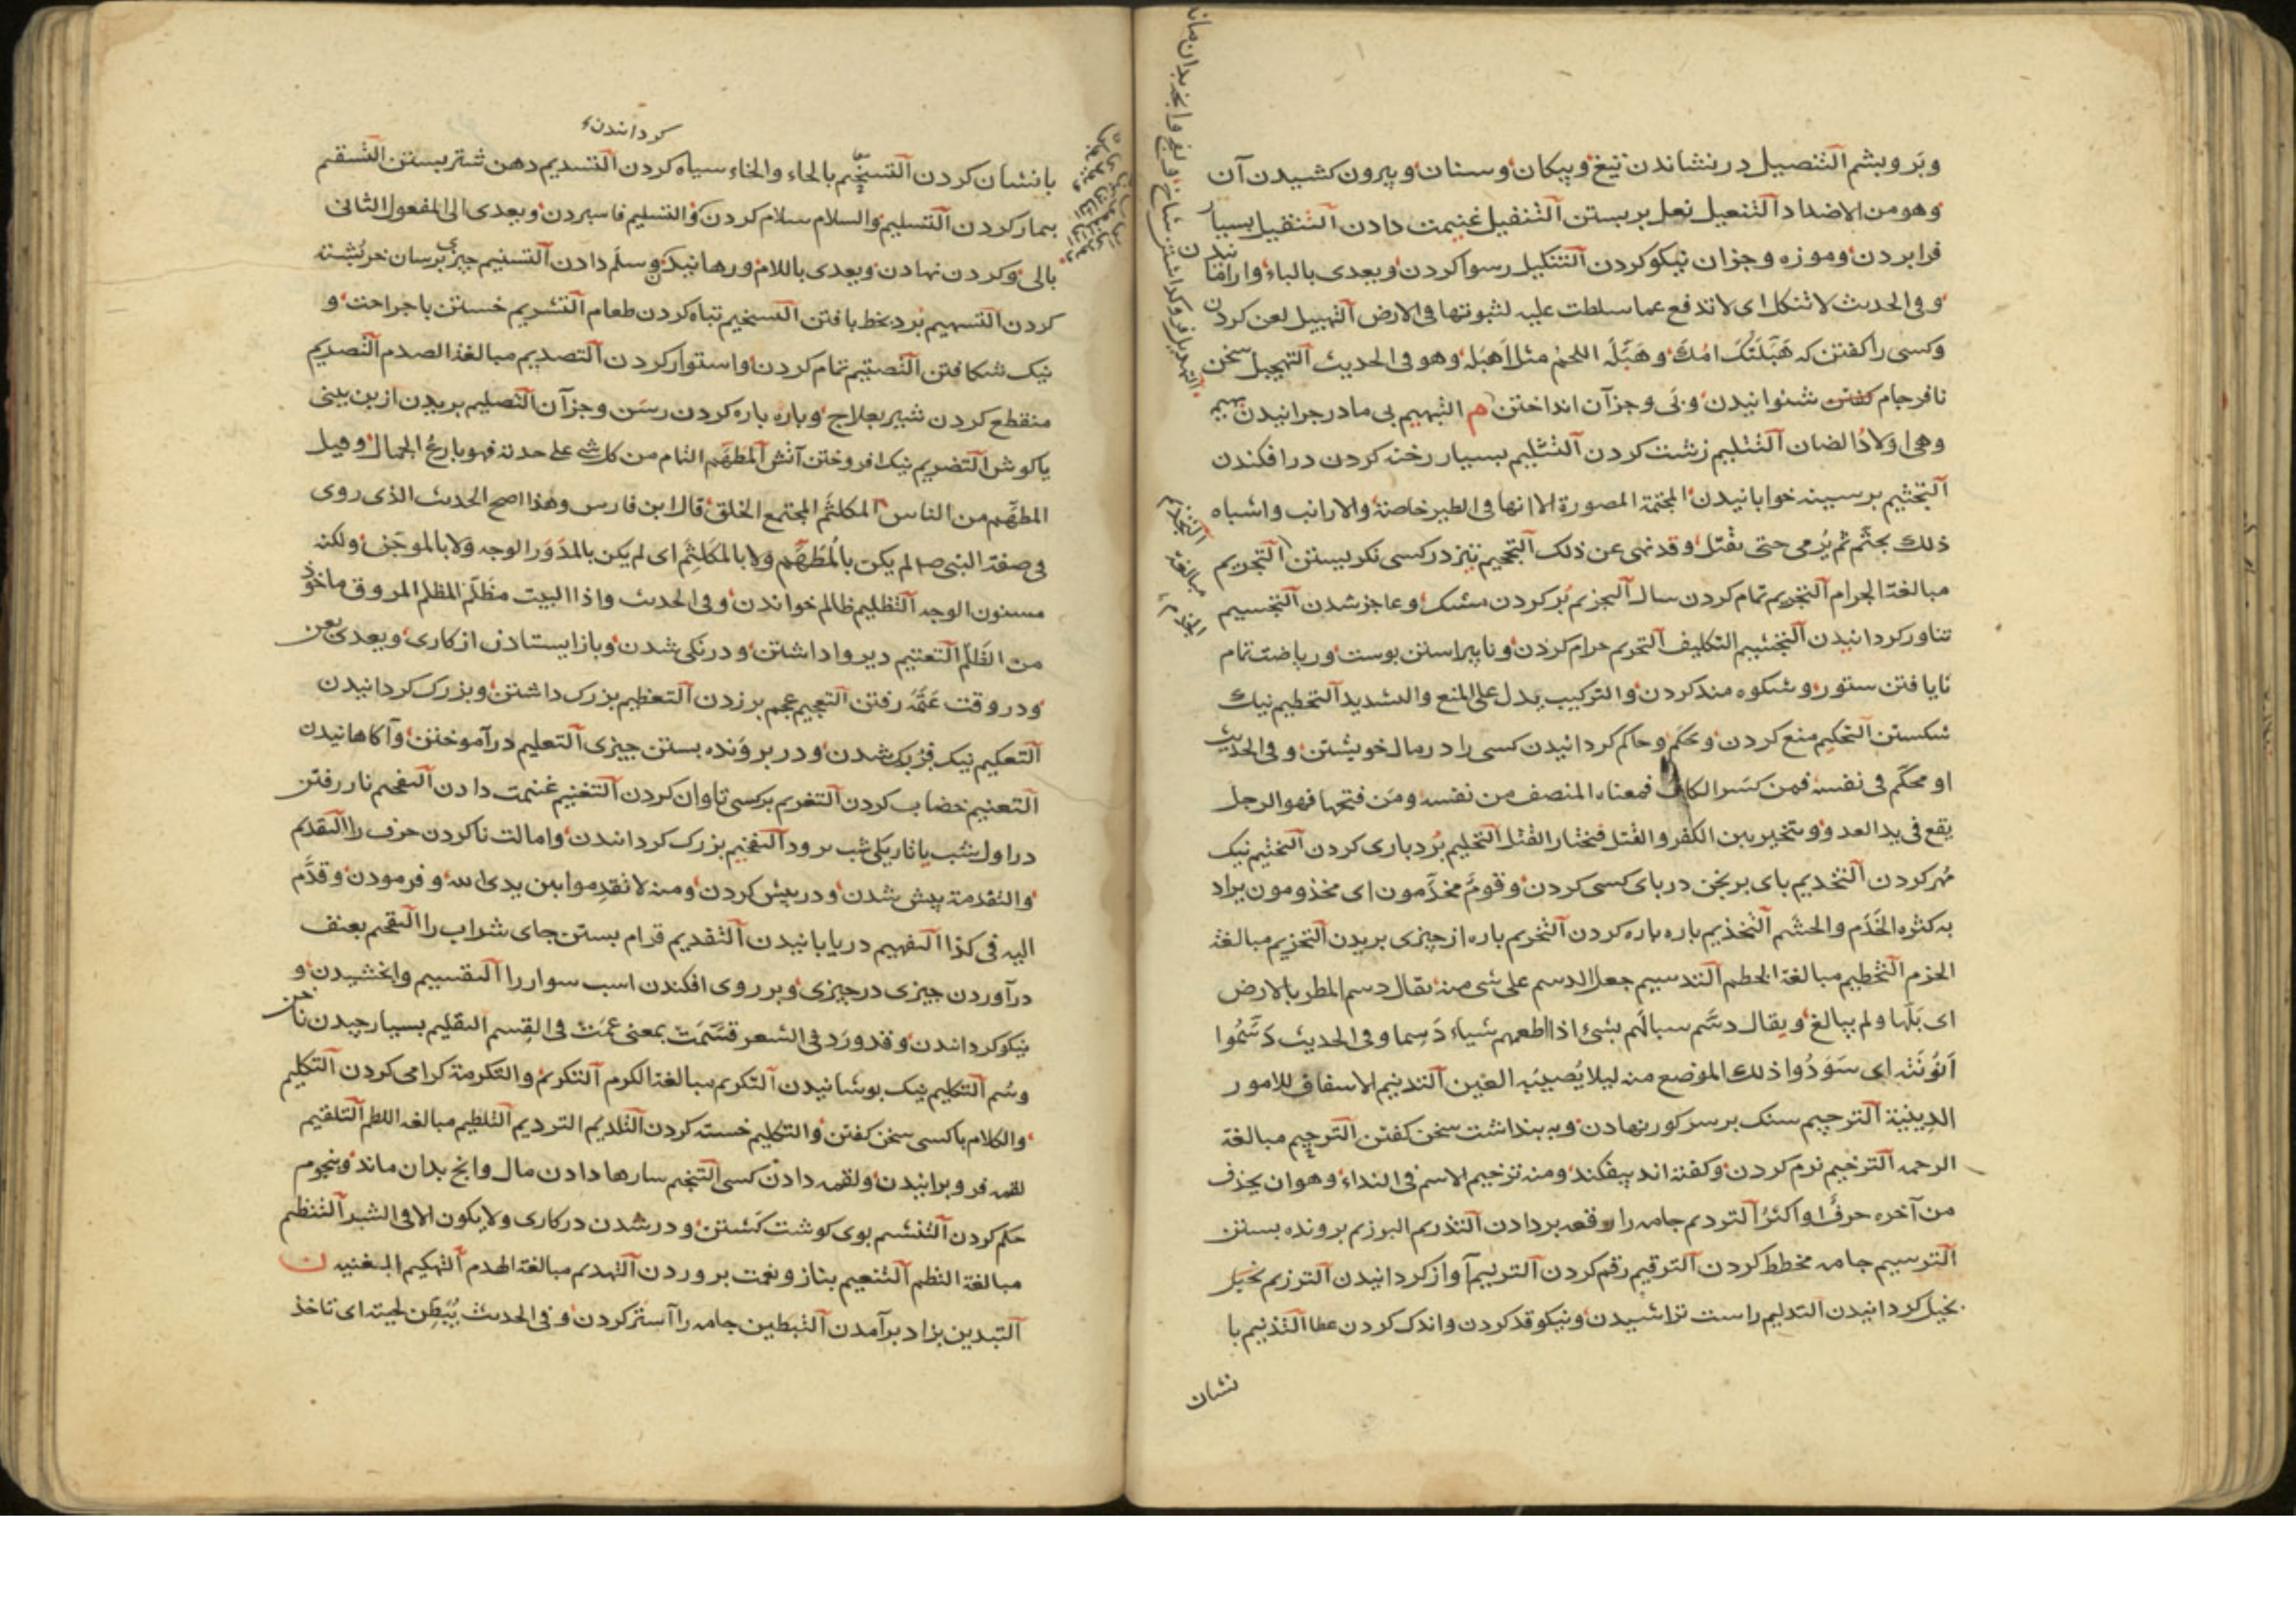 وبر وبشم التنصیل در نشاندن تیغ وپیکان وسنان وبیرون کشیدن آن
وهو من الاضداد التنعیل نعل بر بستن التنفیل غنیمت دادن التنقیل بسیار
فرا بردن وموزه وجزان نیکو کردن التنکیل رسوا کردن ویعدی بالباء
وفی الحدیث لا تنکل ای لا تدفع عما سلطت علیه لثبوتها فی الارض التهبیل لعن کردن
وکسی را کفتن که هَبَّلَتْکَ امُّکَ وهَبَّلَه اللحم مثل اَهبَلَه وهو فی الحدیث التهجیل سخن
نافرجام کفتن شنوانیدن وبَی وجزآن انداختن م التبهیم بی مادر جرانیدن بهیم
وهی اولادُ الضان التثلیم زشت کردن التثلیم بسیار رخنه کردن در افکندن
التجثیم بر سینه خوابانیدن المجثمة المصورة الا انها فی الطیر خاصة والارانب واشباه
ذلک یجثّم ثم یُرمی حتی یقتل وقد نهی عن ذلک التجحیم تیز در کسی نکریستن التجریم
مبالغة الجرام التجریم تمام کردن سال التجزیم پُر کردن مشک وعاجز شدن التجسیم
تناور کردانیدن التجشیم التکلیف التحریم حرام کردن ونابیراستن بوست وریاضت تمام
نایافتن ستور وشکوه مند کردن والترکیب یدل علی المنع والتشدید التحطیم نیک
شکستن التحکیم منع کردن وحکم وحاکم کردانیدن کسی را در مال خویشتن وفی الحدیث
او محکّم فی نفسه فمن کسَر الکاف فمعناه المنصف من نفسه ومَن فتحها فهو الرجل
یقع فی ید العدو ویتخیر بین الکفر والقتل فیختار القتل التحلیم بُردباری کردن التختیم نیک
مُهر کردن التخدیم بای برنجن در بای کسی کردن وقومٌ مخدّمون ای مخدومون یراد
به کثرة الخَدَم والحشَم التخذیم باره باره کردن التخریم باره از چیزی بریدن التخزیم مبالغة
الخزم التخطیم مبالغة الخطم التدسیم جعل الدسم علی شی منه یقال دسم المطر بالارض
ای بَلّها ولم یبالغ ویقال دسَّم سبالَهم بشیء اذا اطعمهم شیاء دَسِما وفی الحدیث دَسِّمُوا
نُونَتَه ای سَوِّدُوا ذلک الموضع منه لیلا یُصیبَه العَین التدنیم الاسفاف للامور
الدینیة الترجیم سنک بر سر کور نهادن وبه بنداشت سخن کفتن الترحیم مبالغة
الرحمه الترخیم نرم کردن وکفته اند بیفکند ومنه ترخیم الاسم فی النداء وهو ان یحذف
من آخره حرفٌ او اکثرُ التردیم جامه را رقعه بر دادن التذریم البرزیم بر ونده بستن
الترسیم جامه مخطط کردن الترقیم رقم کردن الترنیم آواز کردانیدن الترزیم بخیل
بخیل کردانیدن التدلیم راست تراشیدن ونیکو قد کردن واندک کردن عطا التذنیم با
نشان
التجذیم
مبالغة
الجذم
کردانندن
بانشان کردن التسخیم بالحاء والخاء سیاه کردن التسدیم دهن شتر بستن التسقیم
بیمار کردن التسلیم والسلام سلام کردن والتسلیم فا سبردن ویعدی الی المفعول الثانی
بالی وکردن نهادن ویعدی باللام ورهانیدن وسلَم دادن التسنیم چیزی برسان خربشته
کردن التسهیم بُرد بخط بافتن التسخیم تباه کردن طعام التشریم خستن با جراحت و
نیک شکافتن التصمیم تمام کردن واستوار کردن التصدیم مبالغة الصدم التصریم
منقطع کردن شیر بعلاج وباره باره کردن رسَن وجزآن التصلیم بریدن از بن بینی
یا کوش التضریم نیک افروختن آتش المطهَّم التام من کل شی علی حدته فهو بارعُ الجمال وقیل
المطهَّم من الناس المکلثَم المجتمع الخلق قال ابن فارس وهذا اصح الحدیث الذی روی
فی صفة النبی صم لم یکن بالمُطَهَّم ولا بالمُکَلثَم ای لم یکن بالمدَوَّر الوجه ولا بالموجَن ولکنه
مسنون الوجه التظلیم ظالم خواندن وفی الحدیث واذا البیت مظَلَّم المظلم المروق ماخوذ
من الظَلم التعتیم دیر واداشتن ودرنکی شدن وباز ایستادن از کاری ویعدی بعن
ودر وقت عَتَمَه رفتن التعجیم عجم بر زدن التعظیم بزرک داشتن وبزرک کردانیدن
التعکیم نیک فزبک شدن ودر بر ونده بستن چیزی التعلیم در آموختن وآکاهانیدن
التعنیم خضاب کردن التغریم بر کسی تاوان کردن التغنیم غنیمت دادن التفحیم نار رفتن
در اول شب یا تاریکی شب برود التفخیم بزرک کردانندن وامالت ناکردن حرف را التقدیم
والتقدمة پیش شدن ودر پیش کردن ومنه لا تقدِموا بین یدی الله وفرمودن وقدَّم
الیه فی کذا التفهیم در یابانیدن التقدیم قرام بستن جای شراب را التقحیم بعنف
در آوردن چیزی در چیزی وبر روی افکندن اسب سوار را التقسیم وابخشیدن و
نیکو کردانندن وقد ورَد فی الشعر قسَّمَت بمعنی عمّت فی القِسم التقلیم بسیار چیدن ناخن
وسُم التکلیم نیک بوشانیدن التکریم مبالغة الکرم التکریم والتکرمة کرامی کردن التکلیم
والکلام با کسی سخن کفتن والتکلیم خسته کردن التلدیم التردیم التلطیم مبالغه اللطم التلقیم
لقمه فرو برانیدن ولقمه دادن کسی التنجیم سارها دادن مال وانچ بدان ماند ونجوم
حکم کردن التنشیم بوی کوشت کشتن ودر شدن در کاری ولا یکون الا فی الشر التنظیم
مبالغة النظم التنعیم بناز ونعمت بروردن التهدیم مبالغة الهدم التهکیم المغنیه ن
التبدین بزاد برآمدن التبطین جامه را آستر کردن وفی الحدیث یُبَطِّن لحیته ای تاخذ